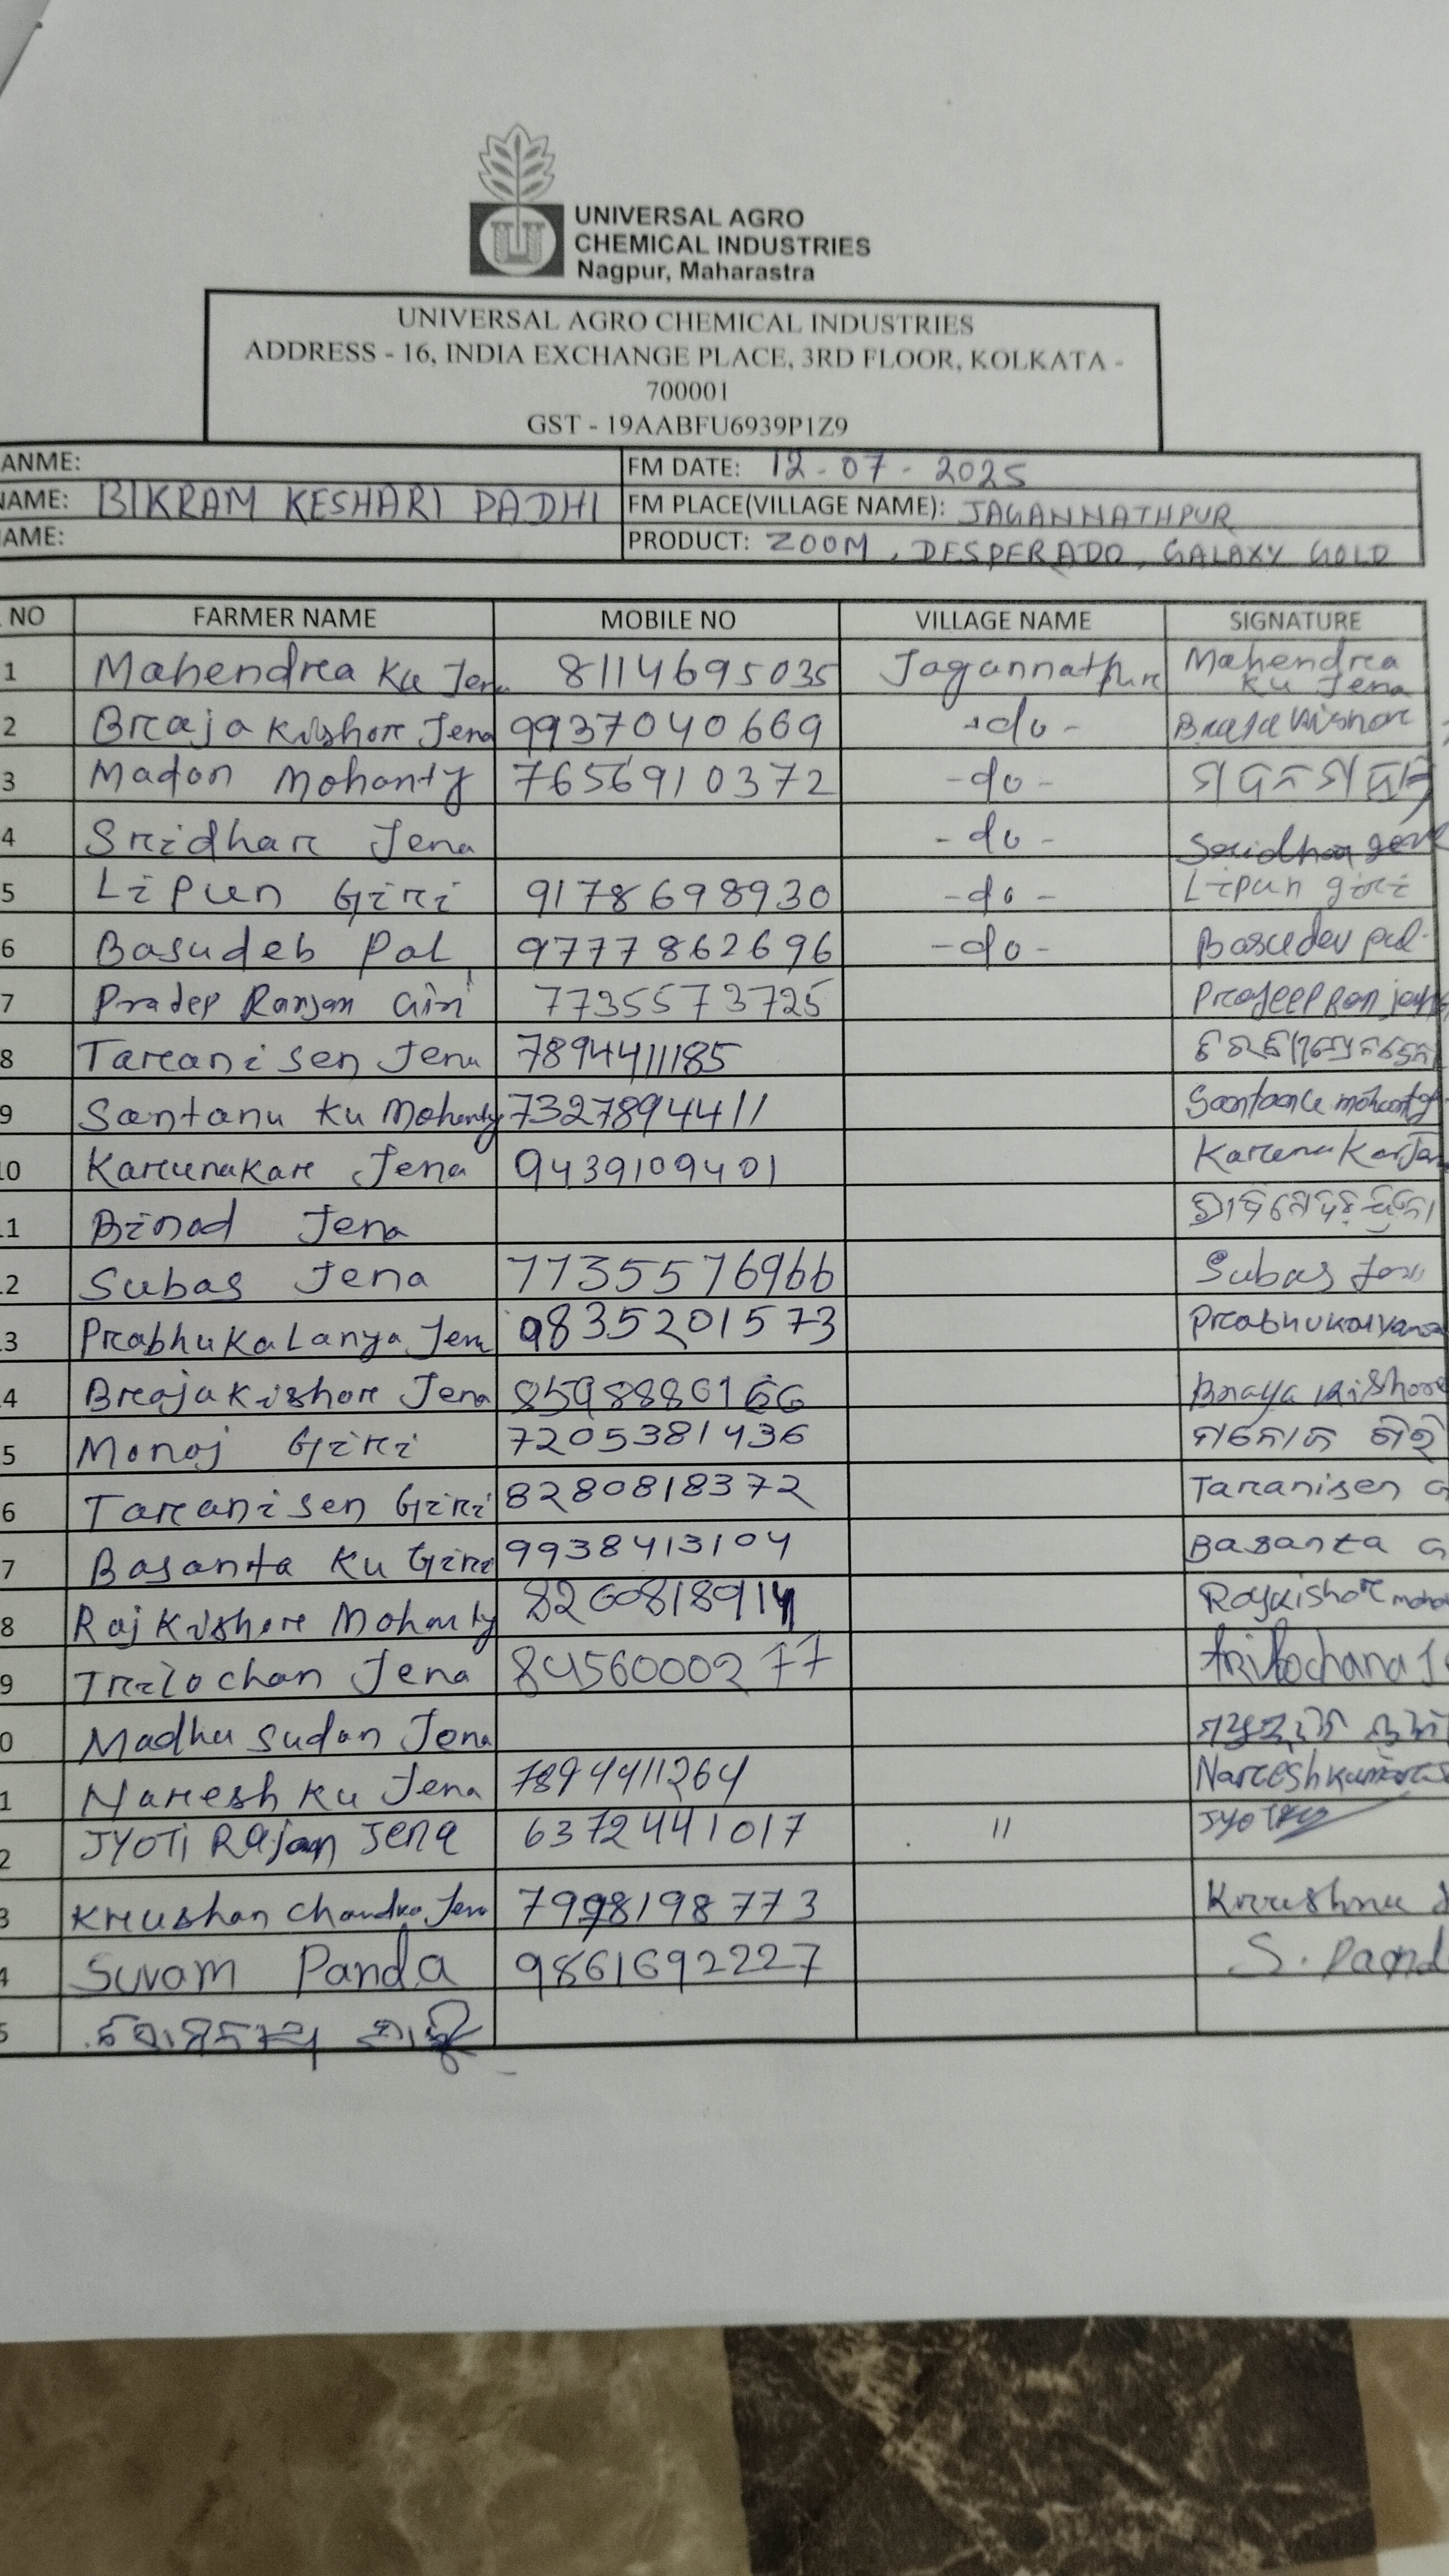 UNIVERSAL AGRO
CHEMICAL INDUSTRIES
Nagpur, Maharastra
UNIVERSAL AGRO CHEMICAL INDUSTRIES
ADDRESS - 16, INDIA EXCHANGE PLACE, 3RD FLOOR, KOLKATA -
700001
GST - 19AABFU6939P1Z9
ANME: FM DATE: 12-07-2025
NAME: BIKRAM KESHARI PADHI FM PLACE(VILLAGE NAME): JAGANNATHPUR
AME: PRODUCT: ZOOM, DESPERADO, GALAXY GOLD
NO FARMER NAME MOBILE NO VILLAGE NAME SIGNATURE
1 Mahendra Ku Jena 8114695035 Jagannathpur Mahendra Ku Jena
2 Braja Kishore Jena 9937040669 -do- Braja Kishor
3 Madan Mohanty 7656910372 -do-
4 Sridhar Jena -do- Sridhar Jena
5 Lipun Giri 9178698930 -do- Lipun giri
6 Basudeb Pal 9777862696 -do- Basudev pal
7 Pradep Ranjan Giri 7735573725 Pradeep Ranjan
8 Taranisen Jena 7894411185
9 Santanu Ku Mohanty 7327894411 mohanty
10 Karunakar Jena 9439109401 Karunakar Jena
11 Binod Jena
2 Subas Jena 7735576966 Subas Jena
3 Prabhukalanya Jena 9835201573
4 Brajakishore Jena 8598886166 Kishore
5 Monoj Giri 7205381436 ମନୋଜ ଗିରି
6 Taranisen Giri 8280818372 Taranisen G
7 Basanta Ku Giri 9938413104 Basanta G
8 Rajkishore Mohanty 8260818914 Rajkishor
9 Trilochan Jena 8456000277 trilochana J
0 Madhusudan Jena
1 Naresh Ku Jena 7894411264 Nareshkumar
2 JYOTI Rajan Jena 6372441017 "
3 Krushan Chandra Jena 7998198773 Krushna
4 Suvam Panda 9861692227 S. Pand
5